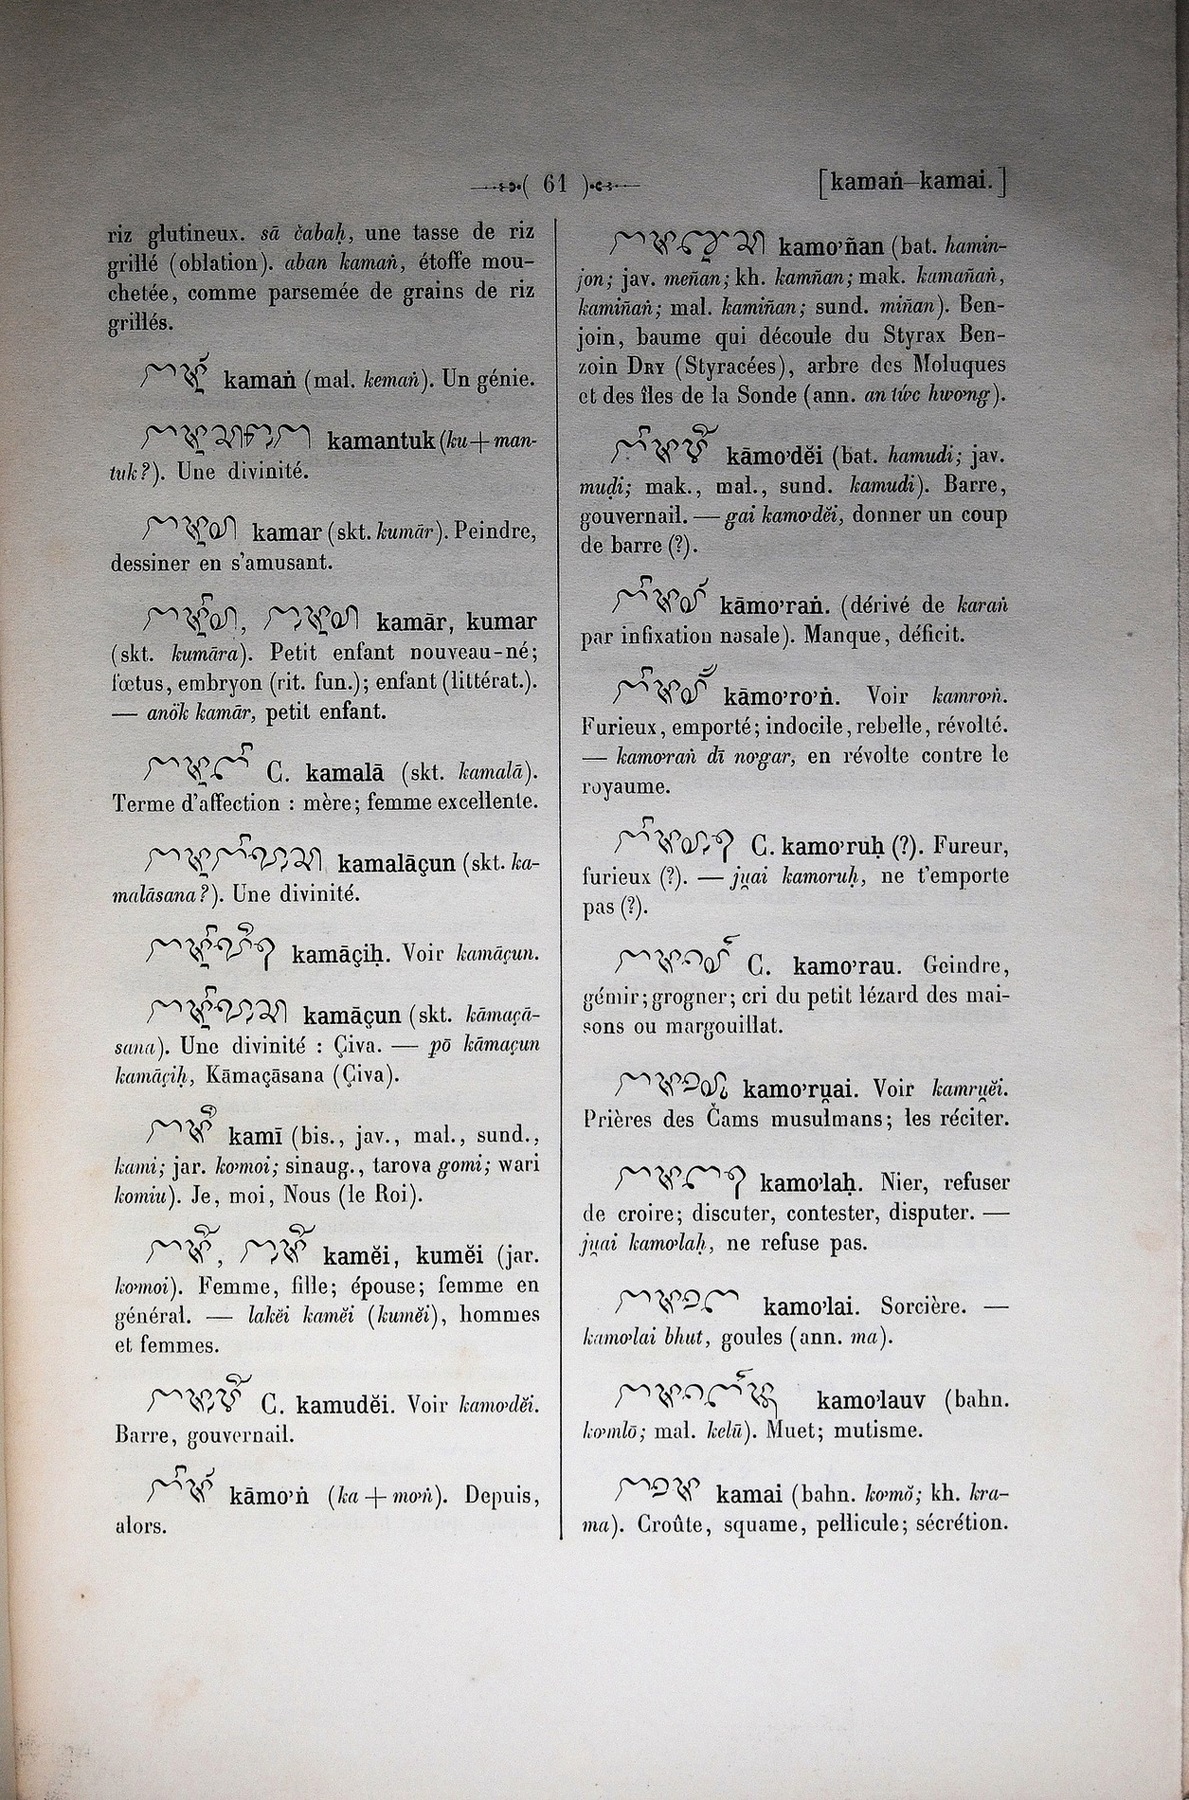 ( 61 )
[kamaṅ–kamai.]
riz glutineux. sā čabaḥ, une tasse de riz
grillé (oblation). aban kamaṅ, étoffe mou-
chetée, comme parsemée de grains de riz
grillés.
kamaṅ (mal. kemaṅ). Un génie.
kamantuk (ku+man-
tuk?). Une divinité.
kamar (skt. kumār). Peindre,
dessiner en s'amusant.
kamār, kumar
(skt. kumāra). Petit enfant nouveau-né;
fœtus, embryon (rit. fun.); enfant (littérat.).
— anö̆k kamār, petit enfant.
C. kamalā (skt. kamalā).
Terme d'affection : mère; femme excellente.
kamalāçun (skt. ka-
malāsana?). Une divinité.
kamāçiḥ. Voir kamāçun.
kamāçun (skt. kāmaçā-
sana). Une divinité : Çiva. — pō kāmaçun
kamāçiḥ, Kāmaçāsana (Çiva).
kamī (bis., jav., mal., sund.,
kami; jar. kơmoi; sinaug., tarova gomi; wari
komiu). Je, moi, Nous (le Roi).
kamĕi, kumĕi (jar.
kơmoi). Femme, fille; épouse; femme en
général. — lakĕi kamĕi (kumĕi), hommes
et femmes.
C. kamudĕi. Voir kamơdĕi.
Barre, gouvernail.
kāmơṅ (ka + mơṅ). Depuis,
alors.
kamơñan (bat. hamin-
jon; jav. meñan; kh. kamñan; mak. kamañaṅ,
kamiñaṅ; mal. kamiñan; sund. miñan). Ben-
join, baume qui découle du Styrax Ben-
zoin Dry (Styracées), arbre des Moluques
et des îles de la Sonde (ann. an tức hương).
kāmơdĕi (bat. hamudi; jav.
muḍi; mak., mal., sund. kamudi). Barre,
gouvernail. — gai kamơdĕi, donner un coup
de barre (?).
kāmơraṅ. (dérivé de karaṅ
par infixation nasale). Manque, déficit.
kāmơrơṅ. Voir kamrơṅ.
Furieux, emporté; indocile, rebelle, révolté.
— kamơraṅ dī nơgar, en révolte contre le
royaume.
C. kamơruḥ (?). Fureur,
furieux (?). — ju̯ai kamoruḥ, ne t'emporte
pas (?).
C. kamơrau. Geindre,
gémir; grogner; cri du petit lézard des mai-
sons ou margouillat.
kamơru̯ai. Voir kamru̯ĕi.
Prières des Čams musulmans; les réciter.
kamơlaḥ. Nier, refuser
de croire; discuter, contester, disputer. —
ju̯ai kamơlaḥ, ne refuse pas.
kamơlai. Sorcière. —
kamơlai bhut, goules (ann. ma).
kamơlauv (bahn.
kơmlō; mal. kelū). Muet; mutisme.
kamai (bahn. kơmŏ; kh. kra-
ma). Croûte, squame, pellicule; sécrétion.